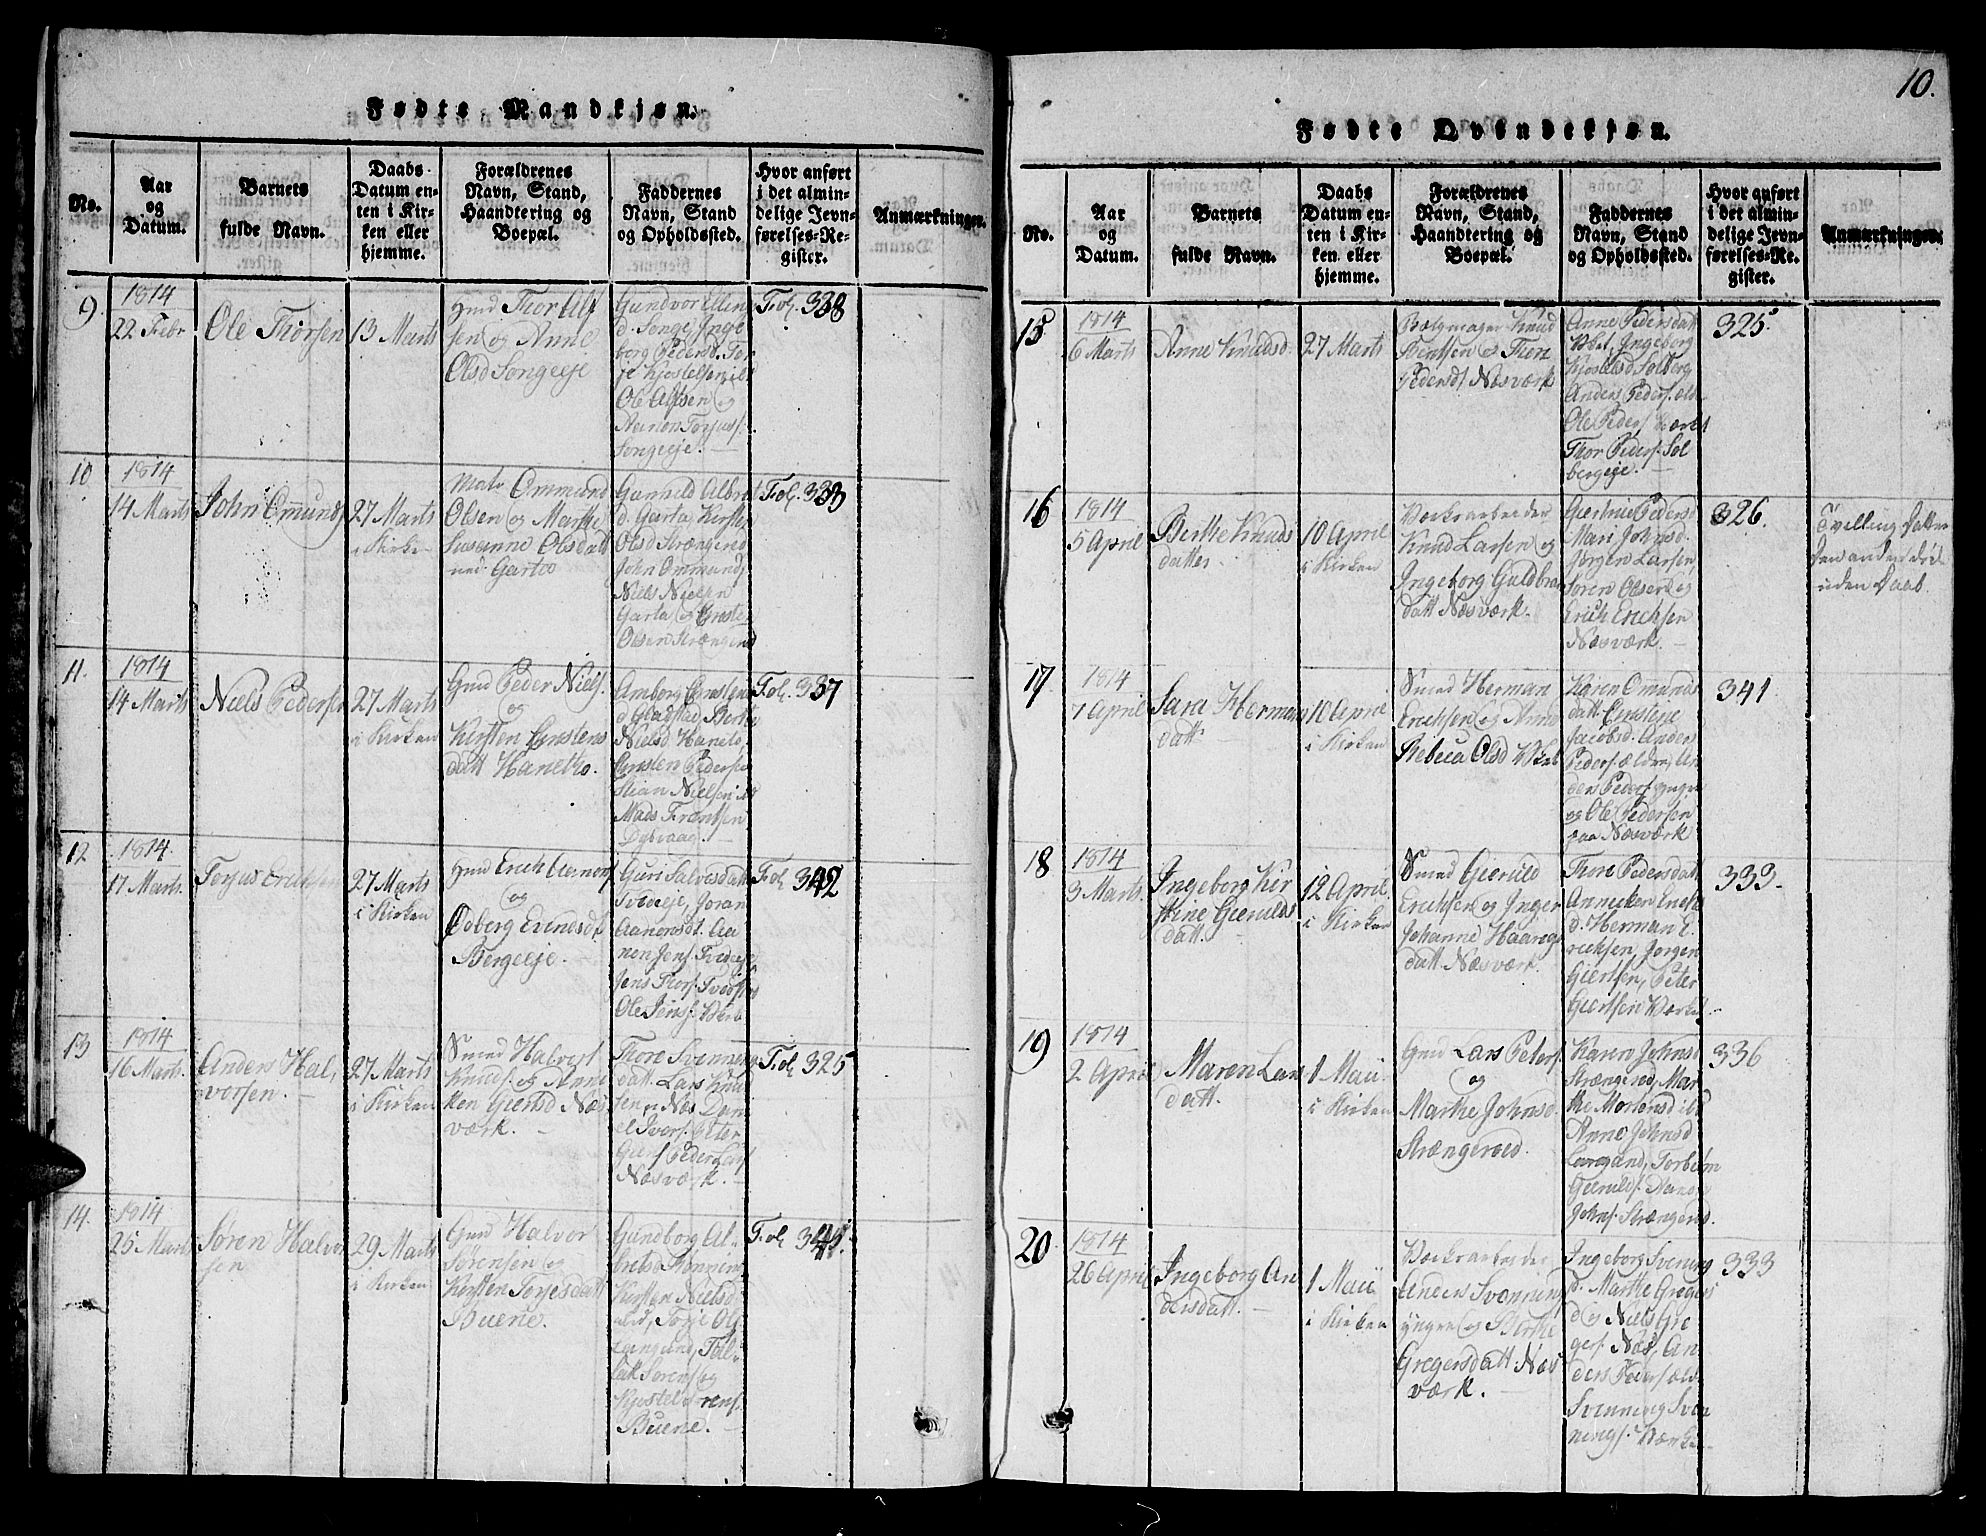 10.
Fødte Mandkjøn.
No.
Aar
og
Datum.
Barnets
fulde Navn.
Daabs
Datum en-
ten i Kir-
ken eller
hjemme.
Forældrenes
Navn, Stand,
Haandtering og
Boepæl.
Faddernes
Navn, Stand
og Opholdssted.
Hvor anført
i det almin-
delige Jevn-
førelses-Re-
gister.
Anmærkninger.
9.
1814
22 Febr
Ole Thorsen
13 Marts
Gmd Thor Alf
sen og Anne
Olsd Songeeje
Gundvor Elling
d. Songe, Inge
borg Pedersd. Tor
je Kjostelsen
Ole Alfsen og
Aanon Torjuss.
Songeeje.
Fol. 338
10
1814
14 Marts
John Omunds
27 Marts
i Kirken
Matr Ommund
Olsen og Marthe
Susanne Olsdatt
Garta
Gunnild Albret
d. Garta, Kirsten
Olsd Strængered
John Ommunds
Niels Nielsen
Garta og Cnsten
Olsen Strængered
Fol. 333
11.
1814
14 Marts
Niels Pedersen
27 Marts
i Kirken
Gmd Peder Niels.
og
Kirsten Cnstens
datt Hanetho.
Amborg Cnstens
d Gladstad, Berte
Nielsd Haneto,
Cnsten Pedersen
Stian Nielsen
Mads Frantsen
Dybvaag.
Fol. 337
12
1814
17 Marts.
Torjus Erichsen
27 Marts
i Kirken
Gmd Erich Aanons
og
Odberg Evindsd
Bergeeje.
Guri Salvesdatt
Tvedeeje, Joran
Aanonsdt. Aa
non Jens.
Jens Thors.
Ole Jens.
Fol 342
13
1814
16 Marts.
Anders Hal,
vorsen.
27 Marts
i Kirken
Smed Halvor
Knuds. og Anne
ken Giertsd Næs
værk.
Thore Svennings
datt. Lars Knud
sen Næs Dani
el Ivers. Peter
Giers Peder Lars
Næsværk.
Fol 325
14.
1814
25 Marts
Søren Halvor
sen
29 Marts
i Kirken
Gmd Halvor
Sørensen og
Kirsten Torjesdatt
Buene.
Gundborg Al-
bretsd
Kirsten Nielsd
Torje Ols
Tal-
lak Sorens og
Kjostel Sorens.
Buene.
Fol 341.
Fødte Qvindekjøn.
No.
Aar
og
Datum.
Barnets
fulde Navn.
Daabs
Datum en-
ten i Kir-
ken eller
hjemme.
Forældrenes
Navn, Stand,
Haandtering og
Boepæl.
Faddernes
Navn, Stand
og Opholdssted.
Hvor anført
i det almin-
delige Jevn-
førelses-Re-
gister.
Anmærkninger.
15
1814
6 Marts
Anne Knudsd.
27 Marts
Bælgmager Knud
Bentsen og Thore
Pedersd Næsværk
Anne Pedersdatt
Ingeborg
Kjostelsd Solberg
Anders Peders. æld
Ole Peders Værket
Thor Peders. Sol
bergeje.
325
16
1814
5 April
Berthe Knuds
datter
10 April
i Kirken
Værksarbeider
Knud Larsen og
Ingeborg Guldbran
datt Næsværk.
Giertrue Pedersd
Mari Johnsd.
Jørgen Larsen,
Søren Olsen og
Erich Erichsen
Næsværk.
326.
Tvilling Datter
den anden døde
uden Daab.
17
1814
7 April
Sara Hermans
datt
10 April
i Kirken
Smed Herman
Erichsen og Anne
Rebeca Olsd
Karen Omunds
datt
Jacobsd. Anders
Peders ældre, An
ders Peders yngre
og Ole Pedersen
paa Næsværk
341
18
1814
3 Marts.
Ingeborg Kir
stine Gierulds
datt.
12 April.
i Kirken
Smed Gieruld
Erichsen og Inger
Johanne Haaregs
datt Næsværk.
Thore Pedersdatt
Anneken Erichs
d. Herman E
richsen, Jørgen
Giertsen, Peter
Giertsen Værket.
333.
19
1814
2 April
Maren Lars
datt.
1 Maii.
i Kirken
Gmd Lars Peters.
og
Marthe Johnsd.
Strængeroed.
Karen Johnsd
Strængered, Mar
the Mortensd
Anne Johnsd
Torbiørn
Gierulds. Aanon
Johns. Strængered.
336
20
1814
26 April
Ingeborg An
dersdatt.
1 Maii
i Kirken
Værksarbeider
Anders Svenning
yngre og Berthe
Gregersdatt Næs
værk.
Ingeborg Svening
d. Marthe Gregers
d og Niels Gre
gers. Næs, An
ders Peders æld
Svenning Sven
nings. Værket.
333